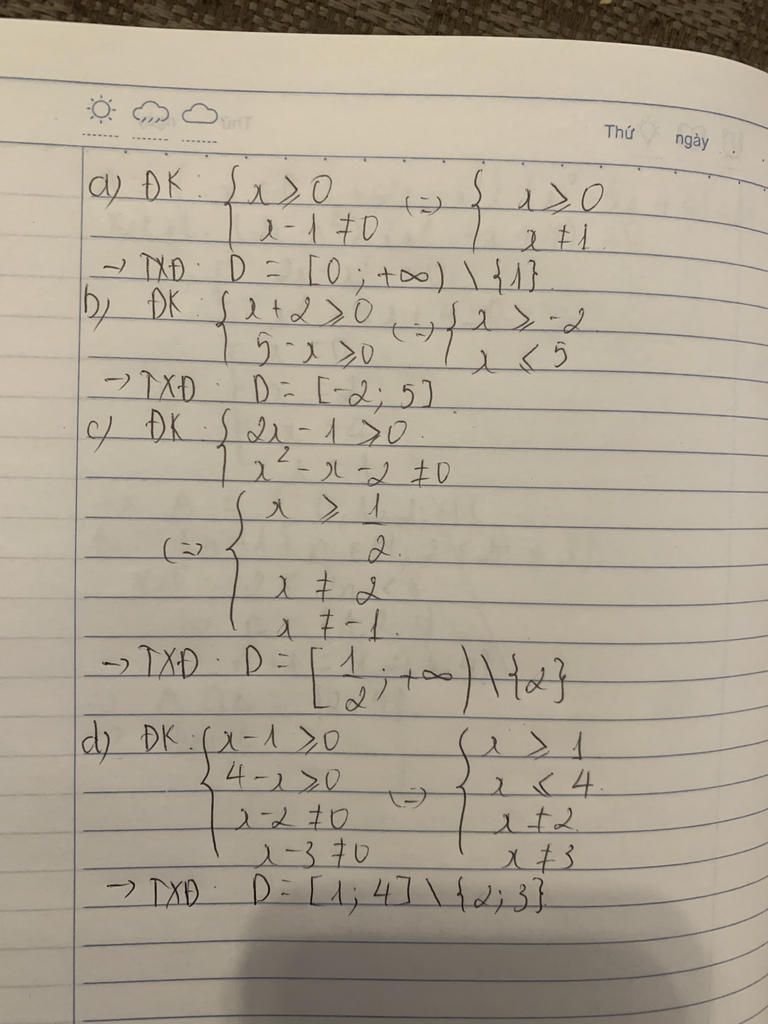 Thứ ngày
a) ĐK: { x ⩾ 0 (=) { x ⩾ 0
x - 1 ≠ 0 x ≠ 1
→ TXĐ. D = [0; +∞) \ {1}.
b) ĐK: { x + 2 ⩾ 0 (=) { x ⩾ -2
5 - x ⩾ 0 x ⩽ 5
→ TXĐ. D = [-2; 5]
c) ĐK: { 2x - 1 ⩾ 0.
x² - x - 2 ≠ 0
(=) { x ⩾ 1/2.
x ≠ 2
x ≠ -1.
→ TXĐ. D = [1/2; +∞) \ {2}
d) ĐK: { x - 1 ⩾ 0 (=) { x ⩾ 1
4 - x ⩾ 0 x ⩽ 4.
x - 2 ≠ 0 x ≠ 2
x - 3 ≠ 0 x ≠ 3
→ TXĐ. D = [1; 4] \ {2; 3}